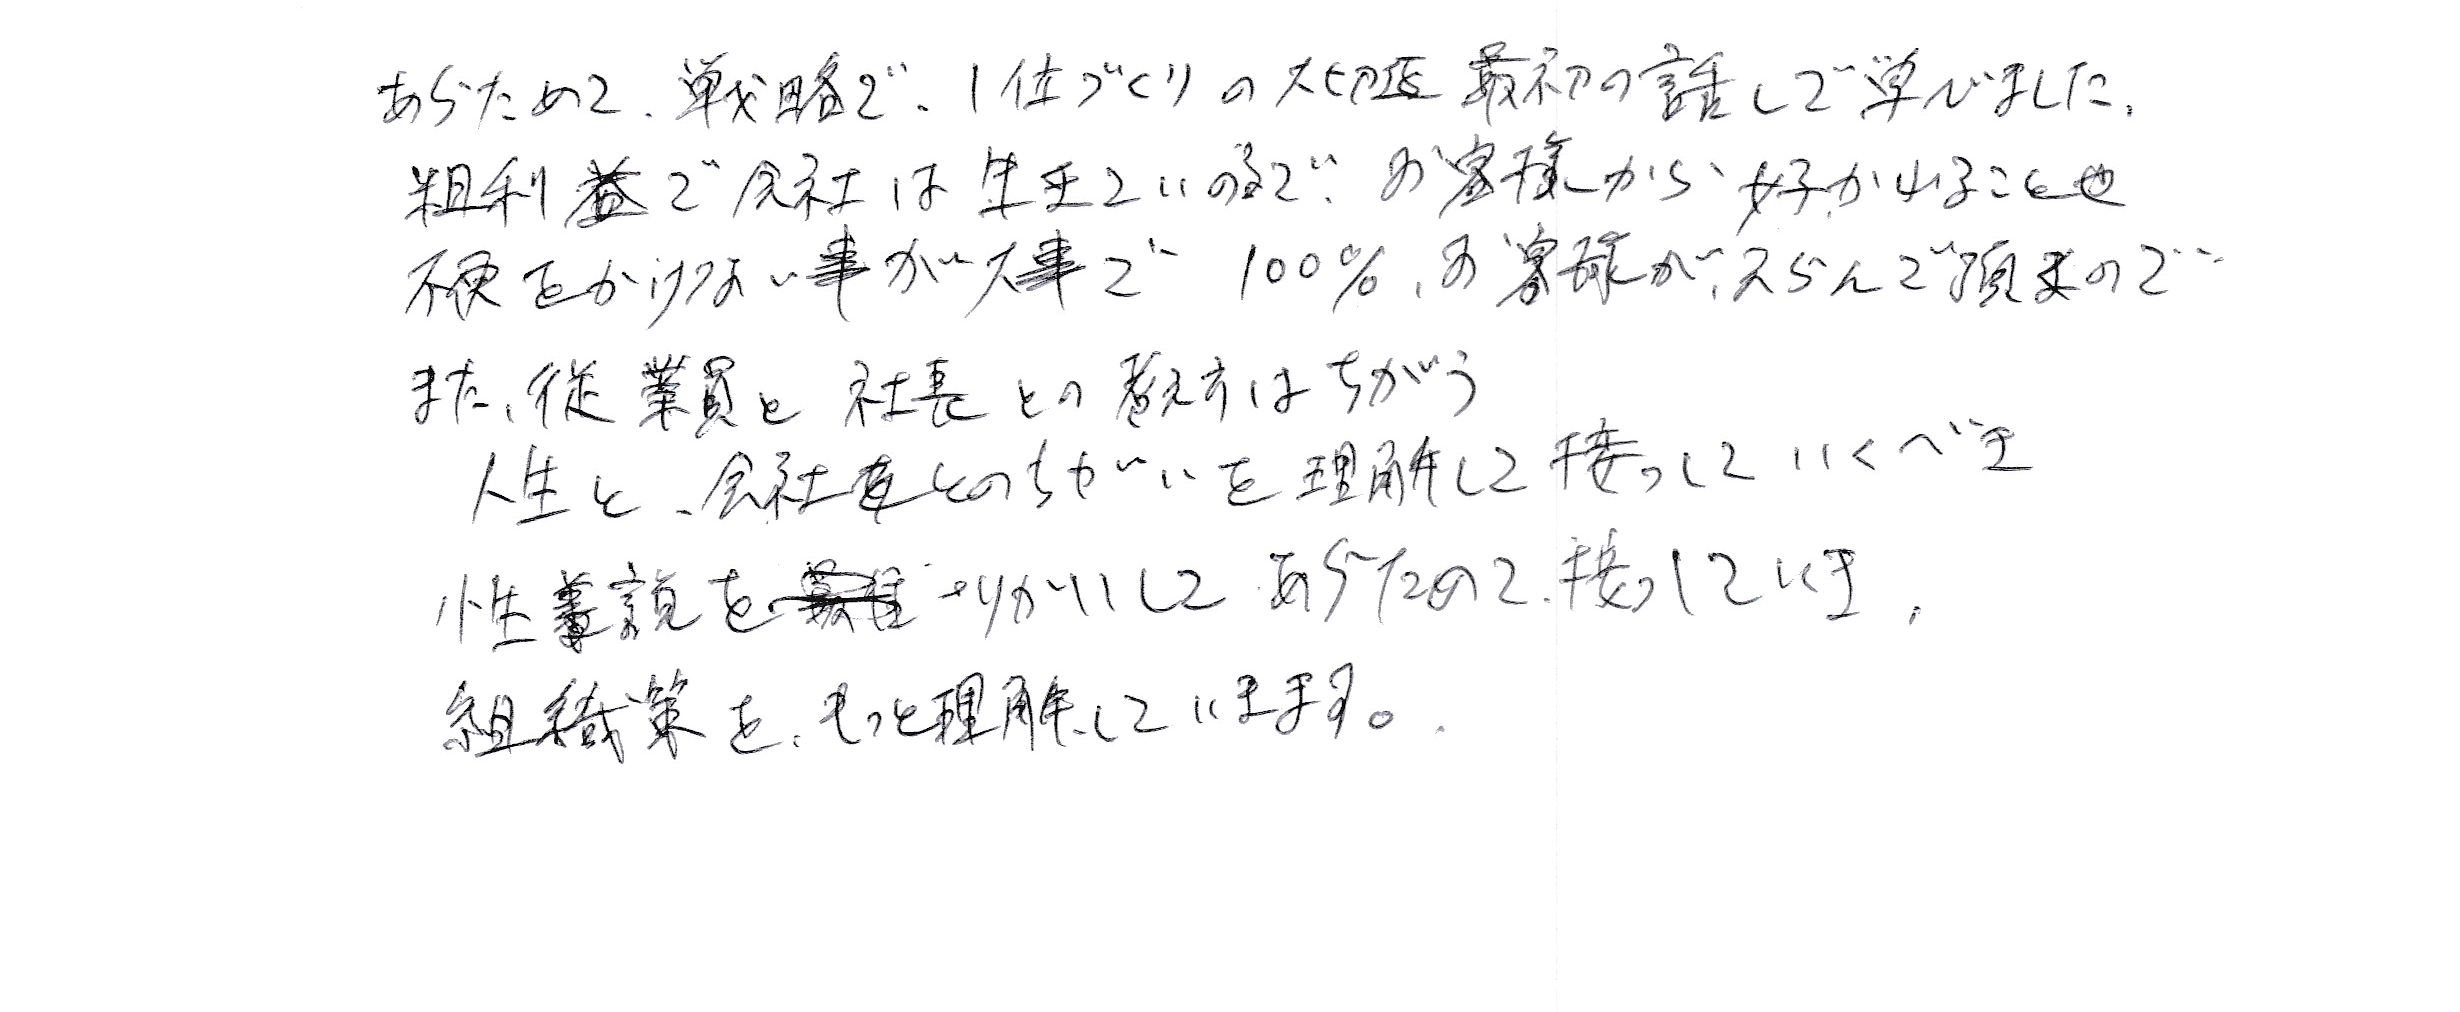 あらためて、戦略で、1位づくりの大切差 最初の話しで学びました、
粗利益で会社は生きているので、お客様から好かれることや
不便をかけない事が大事で 100%、お客様が、えらんで頂きので
また、従業員と社長との考え方はちがう
人生と、会社とのちがいを理解して接っしていくべき
性善説を りかいして あらためて、接っしていき、
組織策を、もっと理解していきます。